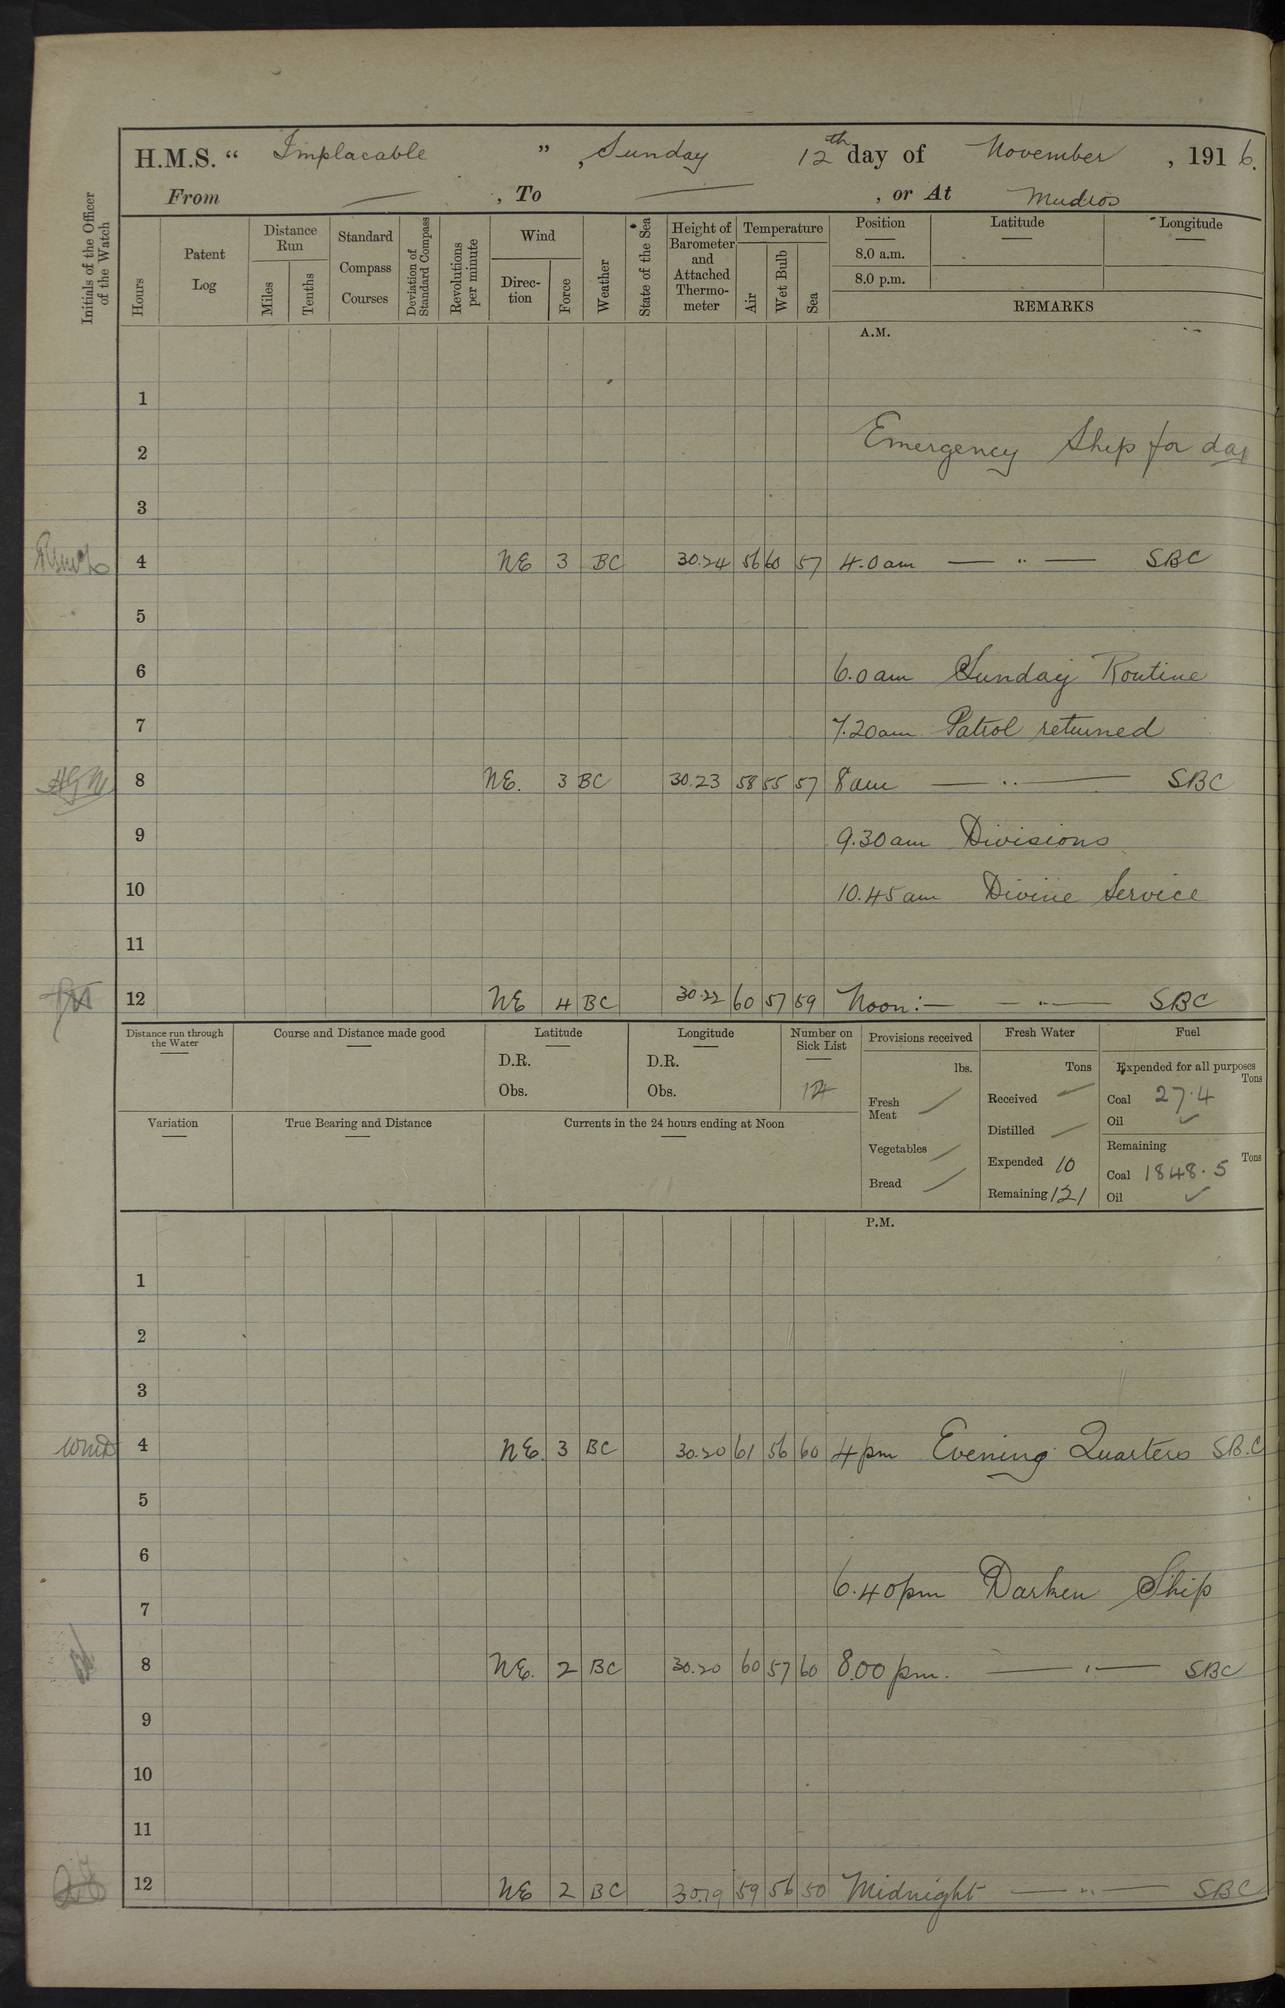 H.M.S. “ Implacable ” , Sunday 12th day of November , 1916.
From — , To — , or At Mudros
Initials of the Officer of the Watch
Hours
Patent Log
Distance Run
Miles
Tenths
Standard Compass Courses
Deviation of Standard Compass
Revolutions per minute
Wind
Direc-tion
Force
Weather
State of the Sea
Height of Barometer and Attached Thermo-meter
Temperature
Air
Wet Bulb
Sea
Position
Latitude
Longitude
8.0 a.m.
8.0 p.m.
REMARKS
A.M.
1
2 Emergency Ship for day
3
4 NE 3 BC 30.24 56 60 57 4.0 am — " — SBC
5
6 6.0 am Sunday Routine
7 7.20 am Patrol returned
8 NE. 3 BC 30.23 58 55 57 8 am — " — SBC
9 9.30 am Divisions
10 10.45 am Divine Service
11
12 NE 4 BC 30.22 60 57 59 Noon:— — " — SBC
Distance run through the Water
Course and Distance made good
Latitude
D.R.
Obs.
Longitude
D.R.
Obs.
Number on Sick List
Provisions received
lbs.
Fresh Meat
Vegetables
Bread
Fresh Water
Tons
Received
Distilled
Expended 10
Remaining 121
Fuel
Expended for all purposes
Tons
Coal 27.4
Oil ✓
Remaining
Tons
Coal 1848.5
Oil ✓
Variation
True Bearing and Distance
Currents in the 24 hours ending at Noon
P.M.
1
2
3
WMD 4 NE. 3 BC 30.20 61 56 60 4 pm Evening Quarters SB.C
5
6
6.40 pm Darken Ship
7
8 NE. 2 BC 30.20 60 57 60 8.00 pm. — " — SBC
9
10
11
12 NE 2 BC 30.19 59 56 50 Midnight — " — SBC